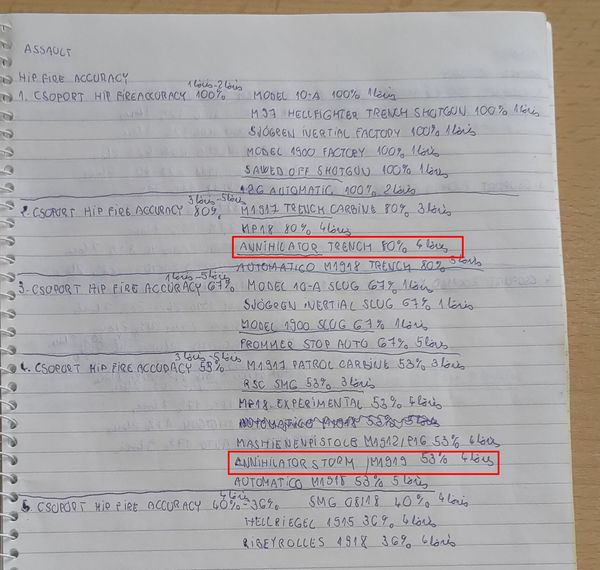 ASSAULT
HIP FIRE ACCURACY
1 lövés-2 lövés
1. CSOPORT HIP FIRE ACCURACY 100% MODEL 10-A 100% 1 lövés
M97 HELLFIGHTER TRENCH SHOTGUN 100% 1 lövés
SJÖGREN INERTIAL FACTORY 100% 1 lövés
MODEL 1900 FACTORY 100% 1 lövés
SAWED OFF SHOTGUN 100% 1 lövés
12G AUTOMATIC 100% 2 lövés
3 lövés-5 lövés
2. CSOPORT HIP FIRE ACCURACY 80% M1917 TRENCH CARBINE 80% 3 lövés
MP18 80% 4 lövés
ANNIHILATOR TRENCH 80% 4 lövés
AUTOMATICO M1918 TRENCH 80% 5 lövés
1 lövés-5 lövés
3. CSOPORT HIP FIRE ACCURACY 67% MODEL 10-A SLUG 67% 1 lövés
SJÖGREN INERTIAL SLUG 67% 1 lövés
MODEL 1900 SLUG 67% 1 lövés
FROMMER STOP AUTO 67% 5 lövés
3 lövés-5 lövés
4. CSOPORT HIP FIRE ACCURACY 53% M1917 PATROL CARBINE 53% 3 lövés
RSC SMG 53% 3 lövés
MP18 EXPERIMENTAL 53% 4 lövés
AUTOMATICO M1918 53% 5 lövés
MASHIENENPISTOLE M1912/P16 53% 4 lövés
ANNIHILATOR STORM /M1919 53% 4 lövés
AUTOMATICO M1918 53% 5 lövés
4 lövés
5. CSOPORT HIP FIRE ACCURACY 40%-36% SMG 08/18 40% 4 lövés
HELLRIEGEL 1915 36% 4 lövés
RIBEYROLLES 1918 36% 4 lövés